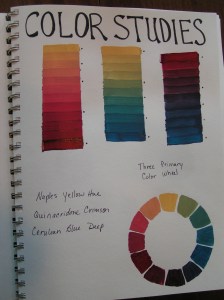 COLOR STUDIES
Three Primary
Color Wheel
Naples Yellow Hue
Quinacridone Crimson
Cerulean Blue Deep